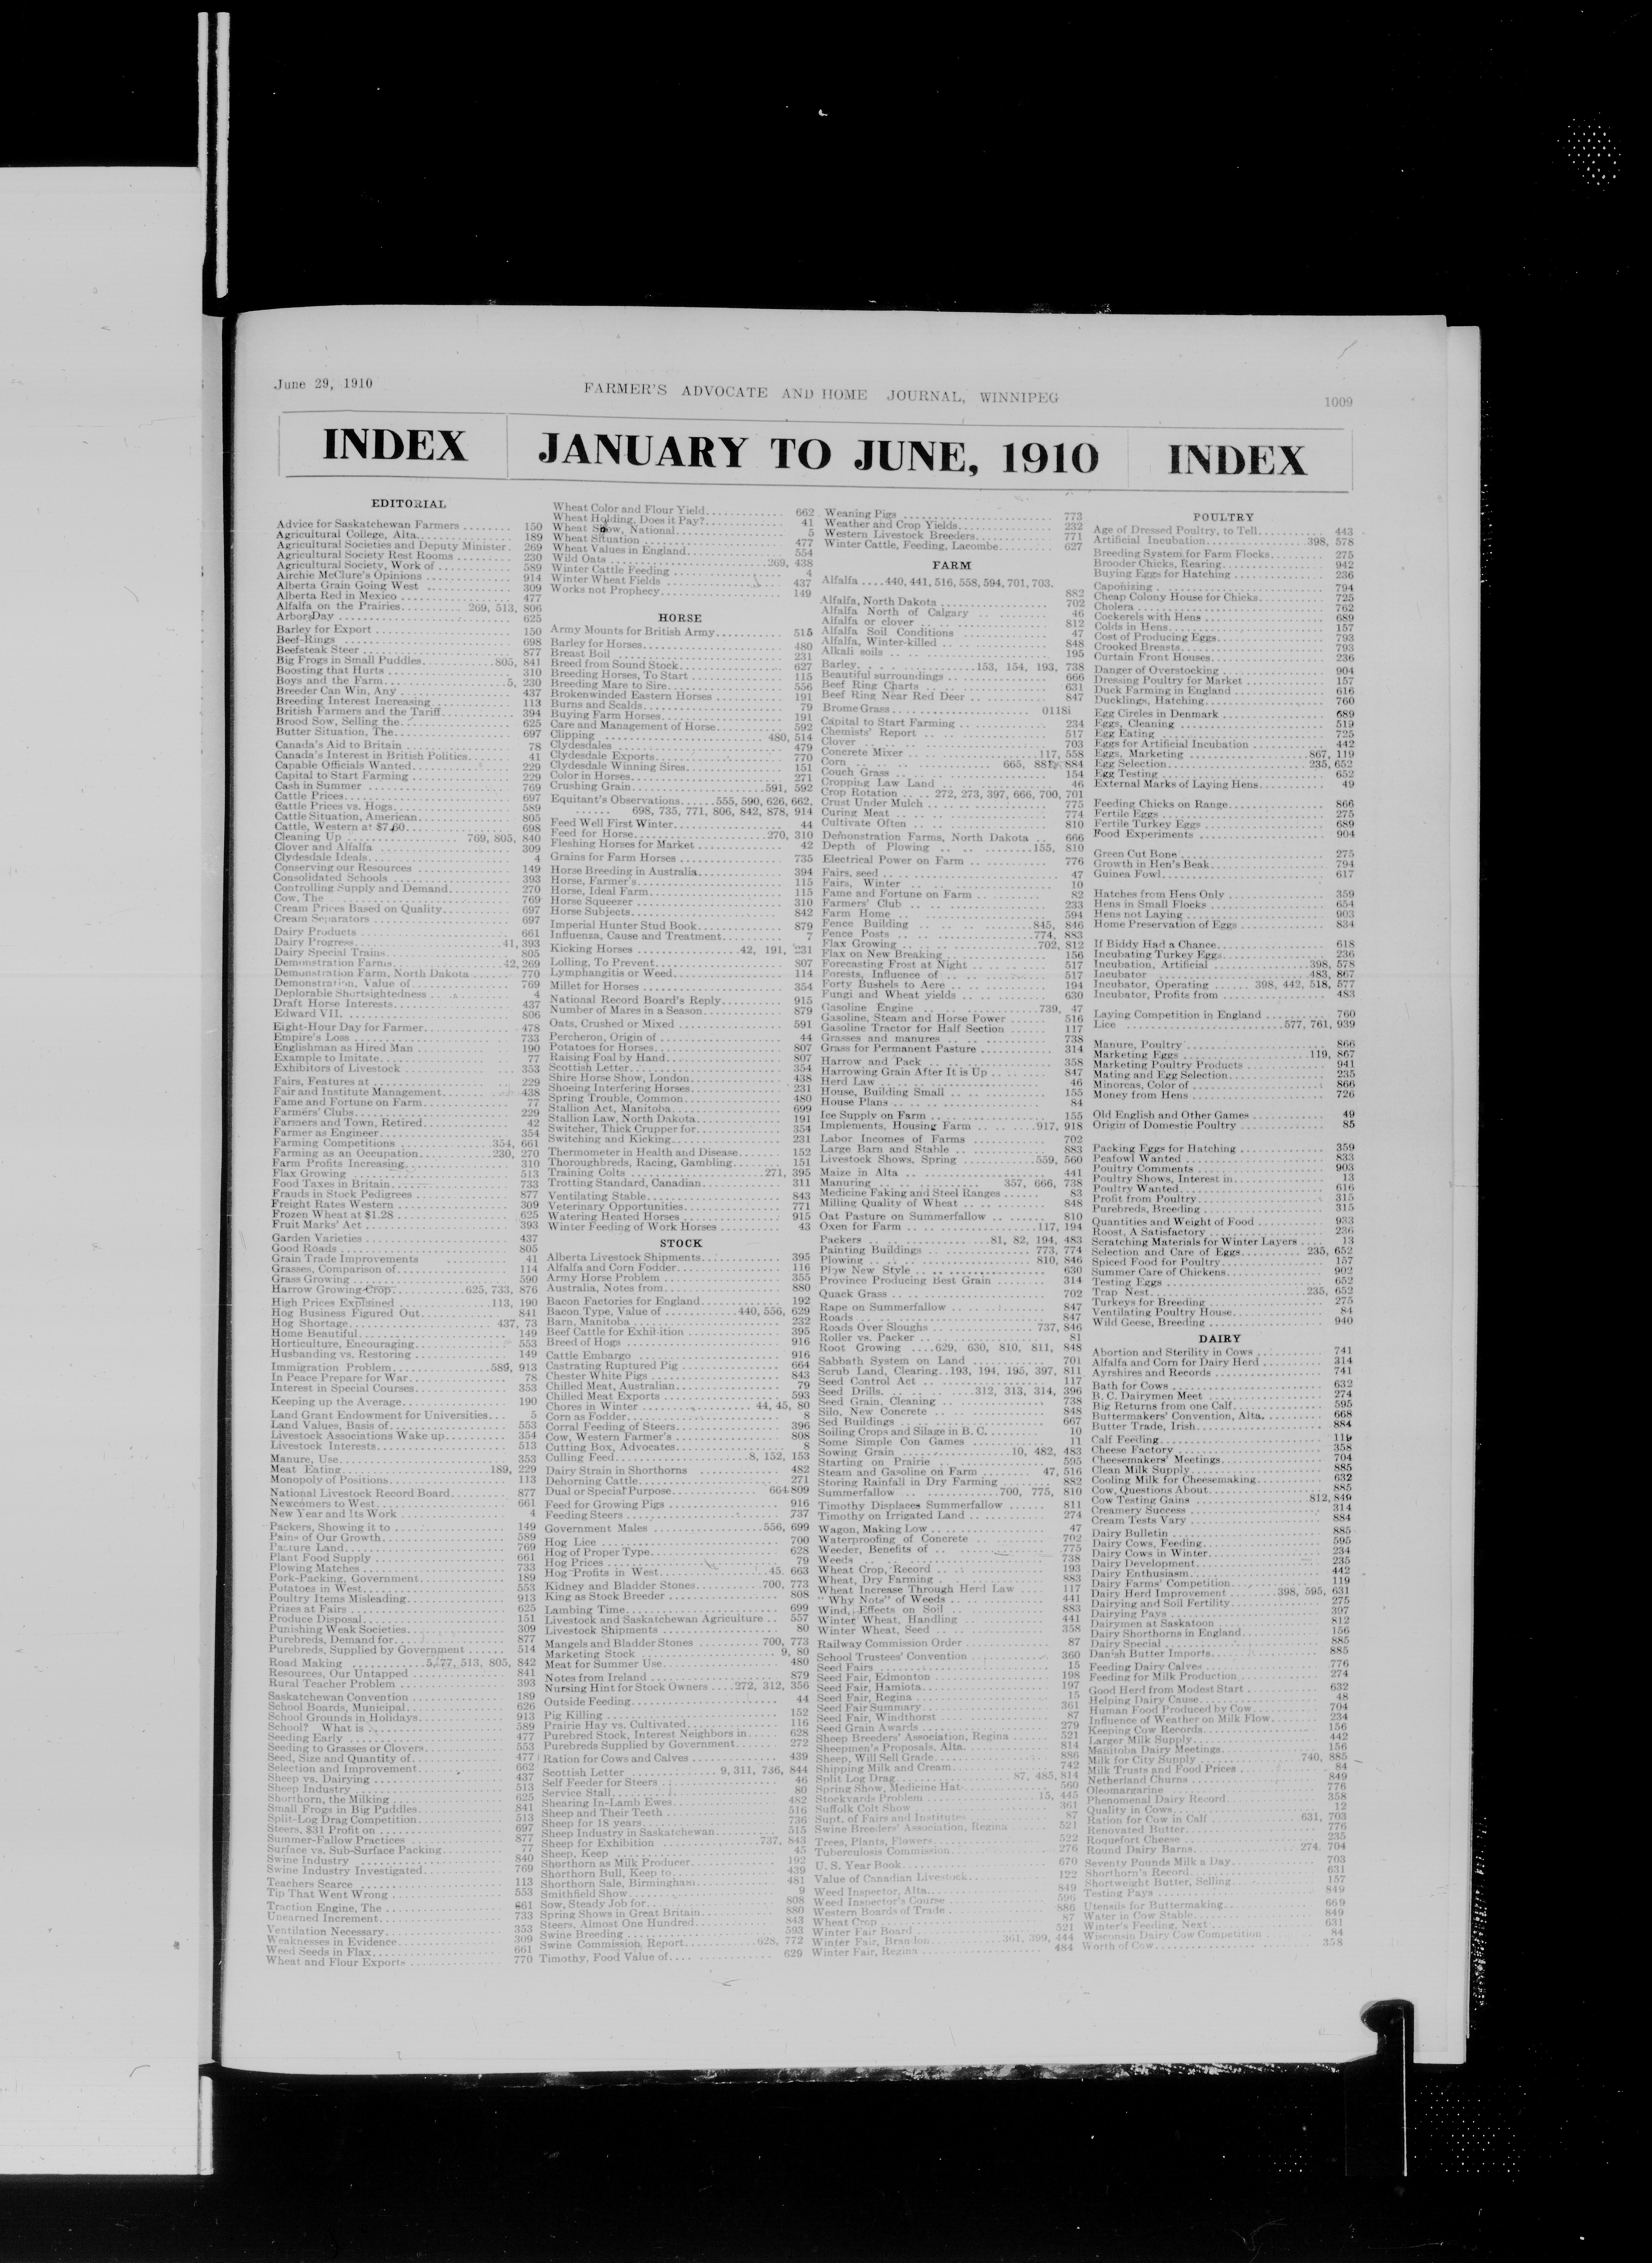 June 29, 1910
FARMER'S ADVOCATE AND HOME JOURNAL, WINNIPEG
1009
INDEX
JANUARY TO JUNE, 1910
INDEX
EDITORIAL
Advice for Saskatchewan Farmers ........ 150
Agricultural College, Alta. ........ 189
Agricultural Societies and Deputy Minister . 269
Agricultural Society Rest Rooms ........ 230
Agricultural Society, Work of ........ 589
Airchie McClure's Opinions ........ 914
Alberta Grain Going West ........ 309
Alberta Red in Mexico ........ 477
Alfalfa on the Prairies ........ 269, 513, 806
Arbor Day ........ 625
Barley for Export ........ 150
Beef-Rings ........ 698
Beefsteak Steer ........ 877
Big Frogs in Small Puddles ........ 805, 841
Boosting that Hurts ........ 310
Boys and the Farm ........ 5, 230
Breeder Can Win, Any ........ 437
Breeding Interest Increasing ........ 113
British Farmers and the Tariff ........ 394
Brood Sow, Selling the ........ 625
Butter Situation, The ........ 697
Canada's Aid to Britain ........ 78
Canada's Interest in British Politics ........ 41
Capable Officials Wanted ........ 229
Capital to Start Farming ........ 229
Cash in Summer ........ 769
Cattle Prices ........ 697
Cattle Prices vs. Hogs ........ 589
Cattle Situation, American ........ 805
Cattle, Western at $7.60 ........ 698
Cleaning Up ........ 769, 805, 840
Clover and Alfalfa ........ 309
Clydesdale Ideals ........ 4
Conserving our Resources ........ 149
Consolidated Schools ........ 393
Controlling Supply and Demand ........ 270
Cow, The ........ 769
Cream Prices Based on Quality ........ 697
Cream Separators ........ 697
Dairy Products ........ 661
Dairy Progress ........ 41, 393
Dairy Special Trains ........ 805
Demonstration Farms ........ 42, 269
Demonstration Farm, North Dakota ........ 770
Demonstration, Value of ........ 769
Deplorable Shortsightedness ........ 4
Draft Horse Interests ........ 437
Edward VII. ........ 806
Eight-Hour Day for Farmer ........ 478
Empire's Loss ........ 733
Englishman as Hired Man ........ 190
Example to Imitate ........ 77
Exhibitors of Livestock ........ 353
Fairs, Features at ........ 229
Fair and Institute Management ........ 438
Fame and Fortune on Farm ........ 77
Farmers' Clubs ........ 229
Farmers and Town, Retired ........ 42
Farmer as Engineer ........ 354
Farming Competitions ........ 354, 661
Farming as an Occupation ........ 230, 270
Farm Profits Increasing ........ 310
Flax Growing ........ 513
Food Taxes in Britain ........ 733
Frauds in Stock Pedigrees ........ 877
Freight Rates Western ........ 309
Frozen Wheat at $1.28 ........ 625
Fruit Marks' Act ........ 393
Garden Varieties ........ 437
Good Roads ........ 805
Grain Trade Improvements ........ 41
Grasses, Comparison of ........ 114
Grass Growing ........ 590
Harrow Growing Crop ........ 625, 733, 876
High Prices Explained ........ 113, 190
Hog Business Figured Out ........ 841
Hog Shortage ........ 437, 73
Home Beautiful ........ 149
Horticulture, Encouraging ........ 553
Husbanding vs. Restoring ........ 149
Immigration Problem ........ 589, 913
In Peace Prepare for War ........ 78
Interest in Special Courses ........ 353
Keeping up the Average ........ 190
Land Grant Endowment for Universities ... 5
Land Values, Basis of ........ 553
Livestock Associations Wake up ........ 354
Livestock Interests ........ 513
Manure, Use ........ 353
Meat Eating ........ 189, 229
Monopoly of Positions ........ 113
National Livestock Record Board ........ 877
Newcomers to West ........ 661
New Year and Its Work ........ 4
Packers, Showing it to ........ 149
Pains of Our Growth ........ 589
Pasture Land ........ 769
Plant Food Supply ........ 661
Plowing Matches ........ 733
Pork-Packing, Government ........ 189
Potatoes in West ........ 553
Poultry Items Misleading ........ 913
Prizes at Fairs ........ 625
Produce Disposal ........ 151
Punishing Weak Societies ........ 309
Purebreds, Demand for ........ 877
Purebreds, Supplied by Government ........ 514
Road Making ........ 5, 77, 513, 805, 842
Resources, Our Untapped ........ 841
Rural Teacher Problem ........ 393
Saskatchewan Convention ........ 189
School Boards, Municipal ........ 626
School Grounds in Holidays ........ 913
School? What is ........ 589
Seeding Early ........ 477
Seeding to Grasses or Clovers ........ 553
Seed, Size and Quantity of ........ 477
Selection and Improvement ........ 662
Sheep vs. Dairying ........ 437
Sheep Industry ........ 513
Shorthorn, the Milking ........ 625
Small Frogs in Big Puddles ........ 841
Split-Log Drag Competition ........ 513
Steers, $31 Profit on ........ 697
Summer-Fallow Practices ........ 877
Surface vs. Sub-Surface Packing ........ 77
Swine Industry ........ 840
Swine Industry Investigated ........ 769
Teachers Scarce ........ 113
Tip That Went Wrong ........ 553
Traction Engine, The ........ 661
Unearned Increment ........ 733
Ventilation Necessary ........ 353
Weaknesses in Evidence ........ 309
Weed Seeds in Flax ........ 661
Wheat and Flour Exports ........ 770
Wheat Color and Flour Yield ........ 662
Wheat Holding, Does it Pay? ........ 41
Wheat Show, National ........ 5
Wheat Situation ........ 477
Wheat Values in England ........ 554
Wild Oats ........ 269, 438
Winter Cattle Feeding ........ 4
Winter Wheat Fields ........ 437
Works not Prophecy ........ 149
HORSE
Army Mounts for British Army ........ 515
Barley for Horses ........ 480
Breast Boil ........ 231
Breed from Sound Stock ........ 627
Breeding Horses, To Start ........ 115
Breeding Mare to Sire ........ 556
Brokenwinded Eastern Horses ........ 191
Burns and Scalds ........ 79
Buying Farm Horses ........ 191
Care and Management of Horse ........ 592
Clipping ........ 480, 514
Clydesdales ........ 479
Clydesdale Exports ........ 770
Clydesdale Winning Sires ........ 151
Color in Horses ........ 271
Crushing Grain ........ 591, 592
Equitant's Observations ...... 555, 590, 626, 662,
...... 698, 735, 771, 806, 842, 878, 914
Feed Well First Winter ........ 44
Feed for Horse ........ 270, 310
Fleshing Horses for Market ........ 42
Grains for Farm Horses ........ 735
Horse Breeding in Australia ........ 394
Horse, Farmer's ........ 115
Horse, Ideal Farm ........ 115
Horse Squeezer ........ 310
Horse Subjects ........ 842
Imperial Hunter Stud Book ........ 879
Influenza, Cause and Treatment ........ 7
Kicking Horses ........ 42, 191, 231
Lolling, To Prevent ........ 807
Lymphangitis or Weed ........ 114
Millet for Horses ........ 354
National Record Board's Reply ........ 915
Number of Mares in a Season ........ 879
Oats, Crushed or Mixed ........ 591
Percheron, Origin of ........ 44
Potatoes for Horses ........ 807
Raising Foal by Hand ........ 807
Scottish Letter ........ 354
Shire Horse Show, London ........ 438
Shoeing Interfering Horses ........ 231
Spring Trouble, Common ........ 480
Stallion Act, Manitoba ........ 699
Stallion Law, North Dakota ........ 191
Switcher, Thick Crupper for ........ 354
Switching and Kicking ........ 231
Thermometer in Health and Disease ........ 152
Thoroughbreds, Racing, Gambling ........ 151
Training Colts ........ 271, 395
Trotting Standard, Canadian ........ 311
Ventilating Stable ........ 843
Veterinary Opportunities ........ 771
Watering Heated Horses ........ 915
Winter Feeding of Work Horses ........ 43
STOCK
Alberta Livestock Shipments ........ 395
Alfalfa and Corn Fodder ........ 116
Army Horse Problem ........ 355
Australia, Notes from ........ 880
Bacon Factories for England ........ 192
Bacon Type, Value of ........ 440, 556, 629
Barn, Manitoba ........ 232
Beef Cattle for Exhibition ........ 395
Breed of Hogs ........ 916
Cattle Embargo ........ 916
Castrating Ruptured Pig ........ 664
Chester White Pigs ........ 843
Chilled Meat, Australian ........ 79
Chilled Meat Exports ........ 593
Chores in Winter ........ 44, 45, 80
Corn as Fodder ........ 8
Corral Feeding of Steers ........ 396
Cow, Western Farmer's ........ 808
Cutting Box, Advocates ........ 8
Culling Feed ........ 8, 152, 153
Dairy Strain in Shorthorns ........ 482
Dehorning Cattle ........ 271
Dual or Special Purpose ........ 664 809
Feed for Growing Pigs ........ 916
Feeding Steers ........ 737
Government Males ........ 556, 699
Hog Lice ........ 700
Hog of Proper Type ........ 628
Hog Prices ........ 79
Hog Profits in West ........ 45, 663
Kidney and Bladder Stones ........ 700, 773
King as Stock Breeder ........ 808
Lambing Time ........ 699
Livestock and Saskatchewan Agriculture .. 557
Livestock Shipments ........ 80
Mangels and Bladder Stones ........ 700, 773
Marketing Stock ........ 9, 80
Meat for Summer Use ........ 480
Notes from Ireland ........ 879
Nursing Hint for Stock Owners .... 272, 312, 356
Outside Feeding ........ 44
Pig Killing ........ 152
Prairie Hay vs. Cultivated ........ 116
Purebred Stock, Interest Neighbors in ..... 628
Purebreds Supplied by Government ........ 272
Ration for Cows and Calves ........ 439
Scottish Letter ........ 9, 311, 736, 844
Self Feeder for Steers ........ 46
Service Stall ........ 80
Shearing In-Lamb Ewes ........ 482
Sheep and Their Teeth ........ 516
Sheep for 18 years ........ 736
Sheep Industry in Saskatchewan ........ 515
Sheep for Exhibition ........ 737, 843
Sheep, Keep ........ 45
Shorthorn as Milk Producer ........ 192
Shorthorn Bull, Keep to ........ 439
Shorthorn Sale, Birmingham ........ 481
Smithfield Show ........ 9
Sow, Steady Job for ........ 808
Spring Shows in Great Britain ........ 880
Steers, Almost One Hundred ........ 843
Swine Breeding ........ 593
Swine Commission Report ........ 628, 772
Timothy, Food Value of ........ 629
Weaning Pigs ........ 773
Weather and Crop Yields ........ 232
Western Livestock Breeders ........ 771
Winter Cattle, Feeding, Lacombe ........ 627
FARM
Alfalfa .... 440, 441, 516, 558, 594, 701, 703.
882
Alfalfa, North Dakota ........ 702
Alfalfa North of Calgary ........ 46
Alfalfa or clover ........ 812
Alfalfa Soil Conditions ........ 47
Alfalfa, Winter-killed ........ 848
Alkali soils ........ 195
Barley ........ 153, 154, 193, 738
Beautiful surroundings ........ 666
Beef Ring Charts ........ 631
Beef Ring Near Red Deer ........ 847
Brome Grass ........ 0118i
Capital to Start Farming ........ 234
Chemists' Report ........ 517
Clover ........ 703
Concrete Mixer ........ 117, 558
Corn ........ 665, 881, 884
Couch Grass ........ 154
Cropping Law Land ........ 46
Crop Rotation .... 272, 273, 397, 666, 700, 701
Crust Under Mulch ........ 775
Curing Meat ........ 774
Cultivate Often ........ 810
Demonstration Farms, North Dakota .. 666
Depth of Plowing ........ 155, 810
Electrical Power on Farm ........ 776
Fairs, seed ........ 47
Fairs, Winter ........ 10
Fame and Fortune on Farm ........ 82
Farmers' Club ........ 233
Farm Home ........ 594
Fence Building ........ 845, 846
Fence Posts ........ 774, 883
Flax Growing ........ 702, 812
Flax on New Breaking ........ 156
Forecasting Frost at Night ........ 517
Forests, Influence of ........ 517
Forty Bushels to Acre ........ 194
Fungi and Wheat yields ........ 630
Gasoline Engine ........ 739, 47
Gasoline, Steam and Horse Power ...... 516
Gasoline Tractor for Half Section ...... 117
Grasses and manures ........ 738
Grass for Permanent Pasture ........ 314
Harrow and Pack ........ 358
Harrowing Grain After It is Up ........ 847
Herd Law ........ 46
House, Building Small ........ 155
House Plans ........ 84
Ice Supply on Farm ........ 155
Implements, Housing Farm ........ 917, 918
Labor Incomes of Farms ........ 702
Large Barn and Stable ........ 883
Livestock Shows, Spring ........ 559, 560
Maize in Alta ........ 441
Manuring ........ 357, 666, 738
Medicine Faking and Steel Ranges ...... 83
Milling Quality of Wheat ........ 848
Oat Pasture on Summerfallow ........ 810
Oxen for Farm ........ 117, 194
Packers ........ 81, 82, 194, 483
Painting Buildings ........ 773, 774
Plowing ........ 810, 846
Plow New Style ........ 630
Province Producing Best Grain ........ 314
Quack Grass ........ 702
Rape on Summerfallow ........ 847
Roads ........ 847
Roads Over Sloughs ........ 737, 846
Roller vs. Packer ........ 81
Root Growing .... 629, 630, 810, 811, 848
Sabbath System on Land ........ 701
Scrub Land, Clearing .. 193, 194, 195, 397, 811
Seed Control Act ........ 117
Seed Drills ........ 312, 313, 314, 396
Seed Grain, Cleaning ........ 738
Silo, New Concrete ........ 848
Sed Buildings ........ 667
Soiling Crops and Silage in B. C. ........ 10
Some Simple Con Games ........ 11
Sowing Grain ........ 10, 482, 483
Starting on Prairie ........ 595
Steam and Gasoline on Farm ........ 47, 516
Storing Rainfall in Dry Farming ........ 882
Summerfallow ........ 700, 775, 810
Timothy Displaces Summerfallow ...... 811
Timothy on Irrigated Land ........ 274
Wagon, Making Low ........ 47
Waterproofing of Concrete ........ 702
Weeder, Benefits of ........ 775
Weeds ........ 738
Wheat Crop, Record ........ 193
Wheat, Dry Farming ........ 883
Wheat Increase Through Herd Law ... 117
"Why Nots" of Weeds ........ 441
Wind, Effects on Soil ........ 883
Winter Wheat, Handling ........ 441
Winter Wheat, Seed ........ 358
Railway Commission Order ........ 87
School Trustees' Convention ........ 360
Seed Fairs ........ 15
Seed Fair, Edmonton ........ 198
Seed Fair, Hamiota ........ 197
Seed Fair, Regina ........ 15
Seed Fair Summary ........ 361
Seed Fair, Windthorst ........ 87
Seed Grain Awards ........ 279
Sheep Breeders' Association, Regina ..... 521
Sheepmen's Proposals, Alta. ........ 814
Sheep, Will Sell Grade ........ 886
Shipping Milk and Cream ........ 742
Split Log Drag ........ 87, 485, 814
Spring Show, Medicine Hat ........ 560
Stockyards Problem ........ 15, 445
Suffolk Colt Show ........ 361
Supt. of Fairs and Institutes ........ 87
Swine Breeders' Association, Regina ..... 521
Trees, Plants, Flowers ........ 522
Tuberculosis Commission ........ 276
U. S. Year Book ........ 670
Value of Canadian Livestock ........ 122
Weed Inspector, Alta. ........ 849
Weed Inspector's Course ........ 596
Western Boards of Trade ........ 886
Wheat Crop ........ 87
Winter Fair Board ........ 521
Winter Fair, Brandon ........ 361, 399, 444
Winter Fair, Regina ........ 484
POULTRY
Age of Dressed Poultry, to Tell ........ 443
Artificial Incubation ........ 398, 578
Breeding System for Farm Flocks ........ 275
Brooder Chicks, Rearing ........ 942
Buying Eggs for Hatching ........ 236
Caponizing ........ 794
Cheap Colony House for Chicks ........ 725
Cholera ........ 762
Cockerels with Hens ........ 689
Colds in Hens ........ 157
Cost of Producing Eggs ........ 793
Crooked Breasts ........ 793
Curtain Front Houses ........ 236
Danger of Overstocking ........ 904
Dressing Poultry for Market ........ 157
Duck Farming in England ........ 616
Ducklings, Hatching ........ 760
Egg Circles in Denmark ........ 689
Eggs, Cleaning ........ 519
Egg Eating ........ 725
Eggs for Artificial Incubation ........ 442
Eggs, Marketing ........ 867, 119
Egg Selection ........ 235, 652
Egg Testing ........ 652
External Marks of Laying Hens ........ 49
Feeding Chicks on Range ........ 866
Fertile Eggs ........ 275
Fertile Turkey Eggs ........ 689
Food Experiments ........ 904
Green Cut Bone ........ 275
Growth in Hen's Beak ........ 794
Guinea Fowl ........ 617
Hatches from Hens Only ........ 359
Hens in Small Flocks ........ 654
Hens not Laying ........ 903
Home Preservation of Eggs ........ 834
If Biddy Had a Chance ........ 618
Incubating Turkey Eggs ........ 236
Incubation, Artificial ........ 398, 578
Incubator ........ 483, 867
Incubator, Operating ...... 398, 442, 518, 577
Incubator, Profits from ........ 483
Laying Competition in England ........ 760
Lice ........ 577, 761, 939
Manure, Poultry ........ 866
Marketing Eggs ........ 119, 867
Marketing Poultry Products ........ 941
Mating and Egg Selection ........ 235
Minorcas, Color of ........ 866
Money from Hens ........ 726
Old English and Other Games ........ 49
Origin of Domestic Poultry ........ 85
Packing Eggs for Hatching ........ 359
Peafowl Wanted ........ 833
Poultry Comments ........ 903
Poultry Shows, Interest in ........ 13
Poultry Wanted ........ 616
Profit from Poultry ........ 315
Purebreds, Breeding ........ 315
Quantities and Weight of Food ........ 933
Roost, A Satisfactory ........ 236
Scratching Materials for Winter Layers .... 13
Selection and Care of Eggs ........ 235, 652
Spiced Food for Poultry ........ 157
Summer Care of Chickens ........ 902
Testing Eggs ........ 652
Trap Nest ........ 235, 652
Turkeys for Breeding ........ 275
Ventilating Poultry House ........ 84
Wild Geese, Breeding ........ 940
DAIRY
Abortion and Sterility in Cows ........ 741
Alfalfa and Corn for Dairy Herd ........ 314
Ayrshires and Records ........ 741
Bath for Cows ........ 632
B. C. Dairymen Meet ........ 274
Big Returns from one Calf ........ 595
Buttermakers' Convention, Alta. ........ 668
Butter Trade, Irish ........ 884
Calf Feeding ........ 119
Cheese Factory ........ 358
Cheesemakers' Meetings ........ 704
Clean Milk Supply ........ 885
Cooling Milk for Cheesemaking ........ 632
Cow, Questions About ........ 885
Cow Testing Gains ........ 812, 849
Creamery Success ........ 314
Cream Tests Vary ........ 884
Dairy Bulletin ........ 885
Dairy Cows, Feeding ........ 595
Dairy Cows in Winter ........ 234
Dairy Development ........ 235
Dairy Enthusiasm ........ 442
Dairy Farms' Competition ........ 119
Dairy Herd Improvement ........ 398, 595, 631
Dairying and Soil Fertility ........ 275
Dairying Pays ........ 397
Dairymen at Saskatoon ........ 812
Dairy Shorthorns in England ........ 156
Dairy Special ........ 885
Danish Butter Imports ........ 885
Feeding Dairy Calves ........ 776
Feeding for Milk Production ........ 274
Good Herd from Modest Start ........ 632
Helping Dairy Cause ........ 48
Human Food Produced by Cow ........ 704
Influence of Weather on Milk Flow ........ 234
Keeping Cow Records ........ 156
Larger Milk Supply ........ 442
Manitoba Dairy Meetings ........ 156
Milk for City Supply ........ 740, 885
Milk Trusts and Food Prices ........ 84
Netherland Churns ........ 849
Oleomargarine ........ 776
Phenomenal Dairy Record ........ 358
Quality in Cows ........ 12
Ration for Cow in Calf ........ 631, 703
Renovated Butter ........ 776
Roquefort Cheese ........ 235
Round Dairy Barns ........ 274, 704
Seventy Pounds Milk a Day ........ 703
Shorthorn's Record ........ 631
Shortweight Butter, Selling ........ 157
Testing Pays ........ 849
Utensils for Buttermaking ........ 669
Water in Cow Stable ........ 849
Winter's Feeding, Next ........ 631
Wisconsin Dairy Cow Competition ........ 84
Worth of Cow ........ 358